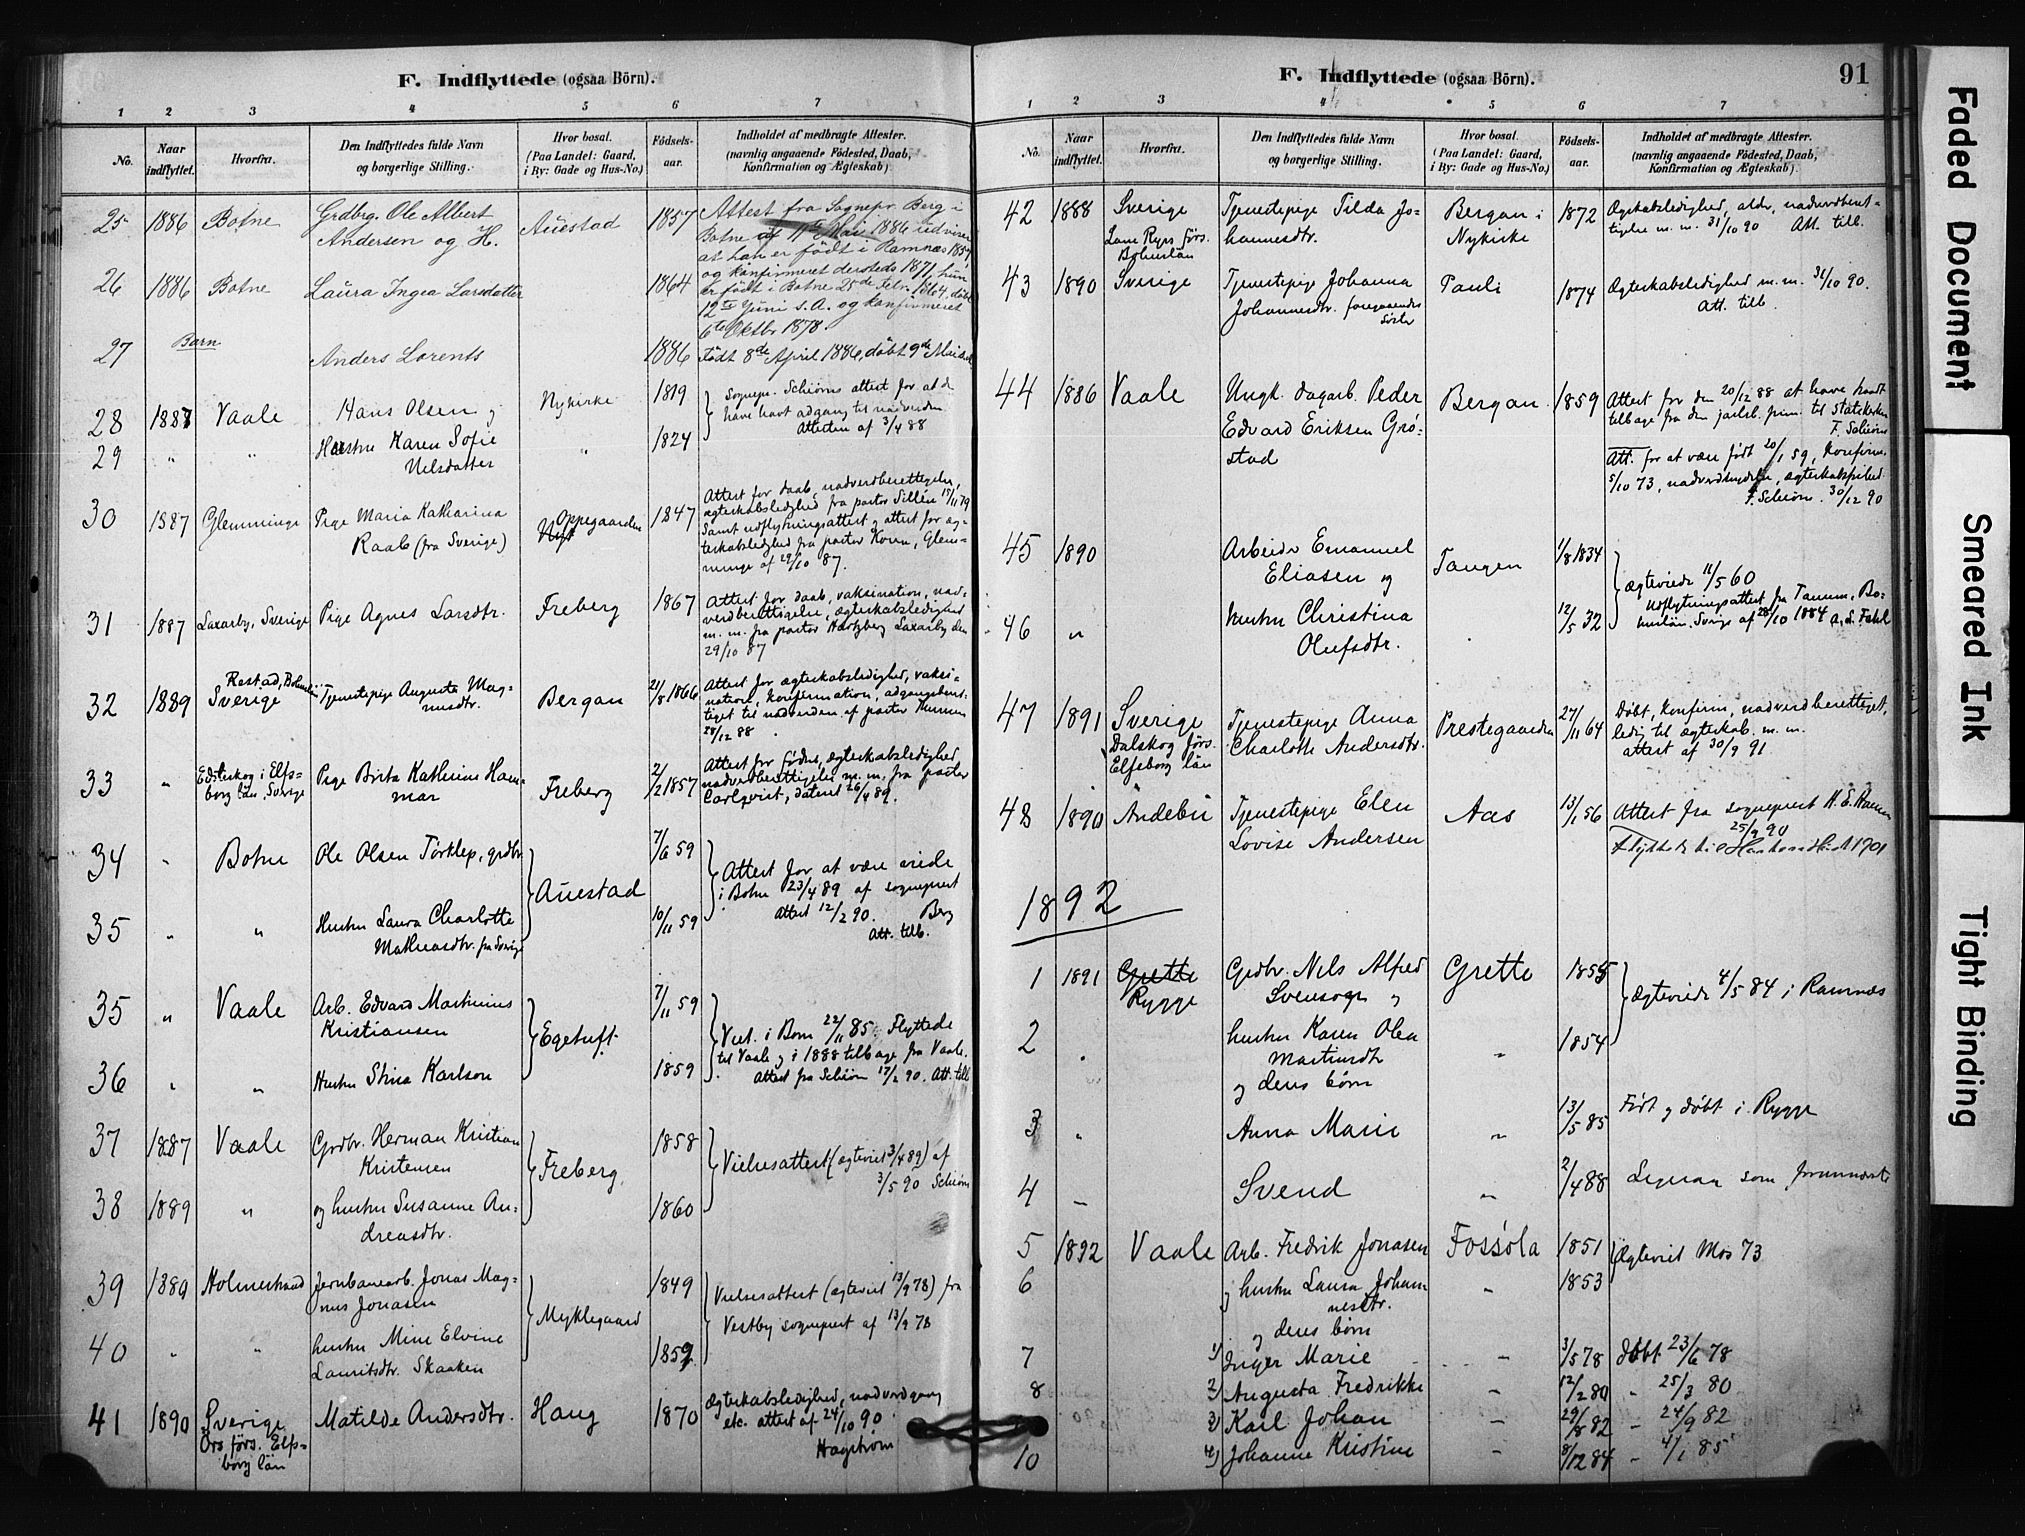 F. Indflyttede (ogsaa Börn).
1 2 3 4 5 6 7
No.
Naar indflyttet.
Hvorfra.
Den Indflyttedes fulde Navn og borgerlige Stilling.
Hvor bosat. (Paa Landet: Gaard, i By: Gade og Hus-No.)
Födsels-aar.
Indholdet af medbragte Attester. (navnlig angaaende Födested, Daab, Konfirmation og Ægteskab)
25 1886 Botne Grdbrg. Ole Albert Auestad 1857 Attest fra Sognepr. Berg i
Andersen og H. Botne af 11te Mai 1886 udviser
at han er født i Ramnæs 1857
og konfirmeret dersteds 1871, hun
26 1886 Botne Laura Ingea Larsdatter 1864 er født i Botne 25de Febr. 1864, døbt
12te Juni s.A. og konfirmeret
6te Oktbr 1878.
Barn
27 Anders Lorents 1886 Født 8de April 1886, døbt 9de Mai
28 1887 Vaale Hans Olsen og Nykirke 1819 Sognepr. Schiørns attest for at de
have havt adgang til nadverden
29 " " Hustru Karen Sofie " 1824 Attesten af 3/4 88
Nilsdatter
30 1887 Glemminge Pige Maria Katharina Oppegaarden 1847 Attest for daab, nadverdberettigelse,
Raab (fra Sverige) ægteskabsledighed fra pastor Sillén 17/11 79
Samt udflytningsattest og attest for æg-
teskabsledighed fra pastor Koren, Glem-
minge af 29/10 87.
31 1887 Laxarby, Sverige Pige Agnes Larsdtr. Freberg 1867 Attest for daab, vaksination, nad-
verdberettigelse, ægteskabsledighed
m. m. fra pastor Hertzberg Laxarby den
29/10 87
32 1889 Sverige Tjenestepige Augusta Mag- Bergan 21/8 1866 Attest for ægteskabsledighed, vaksi-
nusdtr. nation, konfirmation, adgangsberet-
tiget til nadverden af pastor
28/12 88.
33 " Edsleskog i Elfs- Pige Brita Kathrine Ham- Freberg 2/2 1857 Attest for fødsel, ægteskabsledighed
borg län, Sverige mar nadverdberettigelse m.m. fra pastor
Carlqvist, dateret 26/4 89.
34 " Botne Ole Olsen Torklep, grdbr. Auestad 7/6 59 Attest for at være viede
i Botne 23/4 89 af sogneprest
35 " " Hustru Laura Charlotte 10/11 59 Attest 12/2 90. Berg
Mathiasdtr. fra Sverige Att. tilb.
35 " Vaale Arb. Edvard Martinius Egetuft 7/11 59 Viet i Borre 22/11 85. Flyttede
Kristiansen til Vaale og i 1888 tilbage fra Vaale.
36 " " Hustru Stina Karlson 1859 Attest fra Schiørn 17/2 90. Att. tilb
37 1887 Vaale Grdbr. Herman Kristian Freberg 1858 Vielsesattest (ægteviet 3/4 89) af
Kristensen 3/5 90 Schiørn
38 1889 " og hustru Susanne An- 1860
dreasdtr.
39 1880 Holmestrand Jernbanearb. Jonas Mag- Myklegaard 1849 Vielsesattest (ægteviet 13/9 78) fra
nus Jonasen Vestby sogneprest af 13/9 78
40 " " hustru Mine Elvine 1859
Lauritsdtr. Skaaken
41 1890 Sverige Matilde Andersdtr. Haug 1870 Ægteskabsledighed, nadverdgang
Ørs förs. Elfs- etc. attest af 24/10 90.
borg län Hagström
F. Indflyttede (ogsaa Börn). 91
1 2 3 4 5 6 7
No.
Naar indflyttet.
Hvorfra.
Den Indflyttedes fulde Navn og borgerlige Stilling.
Hvor bosat. (Paa Landet: Gaard, i By: Gade og Hus-No.)
Födsels-aar.
Indholdet af medbragte Attester. (navnlig angaaende Födested, Daab, Konfirmation og Ægteskab).
42 1888 Sverige Tjenestepige Tilda Jo- Bergan i 1872 Ægteskabsledighed, alder, nadverdberet-
Lane Ryrs förs. hannesdtr. Nykirke tigelse m. m. 31/10 90 Att. tilb.
Bohuslän
43 1890 Sverige Tjenestepige Johanna Pauli 1874 Ægteskabsledighed m. m. 31/10 90.
Johannesdtr. foregaaendes Att. tilb.
søster
44 1886 Vaale Ungk. dagarb. Peder Bergan 1859 Attest for den 20/12 88 at have traadt
Edvard Eriksen Grø- tilbage fra den jarlsb. prim. til statskirken
stad F. Schiørn
Att. for at være født 20/1 59, konfirm.
5/10 73, nadverdnydelse, ægteskabsfrihed
F. Schiørn. 30/12 90
45 1890 Arbeider Emanuel Tangen 1/8 1834 Ægteviede 11/5 60
Eliasen og Udflytningsattest fra Tanum, Bo-
46 " hustru Christina 12/5 32 huslän. Sverige af 28/10 1884
Olufsdtr.
47 1891 Sverige Tjenestepige Anna Prestegaarden 27/11 64 Døbt, konfirm, nadverdberettiget,
Dalskog förs. Charlotte Andersdtr. ledig til ægteskab. m. m.
Elfsborg län attest af 30/9 91
48 1890 Andebu Tjenestepige Elen Aas 13/1 56 Attest fra sogneprest
Lovise Andersen 25/9 90
Flyttede til Holmestrand 1901
1892
1 1891 Grette Grdbr. Nels Alfred Grette 1855 Ægteviede 4/5 84 i Ramnæs
Rygge Svensogn og
2 " hustru Karen Olea " 1854
Martinsdtr
og deres børn
3 " Anna Marie " 13/5 85 Født og døbt i Rygge
4 — Svend " 2/4 88 Ligesaa som
5 1892 Vaale Arb. Fredrik Jonasen Fossøla 1851 Ægteviet Mos 73
6 og hustru Laura Johan " 1853
nesdtr.
og deres børn
7 1) Inger Marie " 3/5 78 døbt 23/6 78
8 2) Augusta Fredrikke " 12/2 80 " 25/3 80
3) Karl Johan " 29/8 82 " 24/9 82
10 4) Johanne Kristine " 8/12 84 " 4/1 85
Faded Document
Smeared Ink
Tight Binding